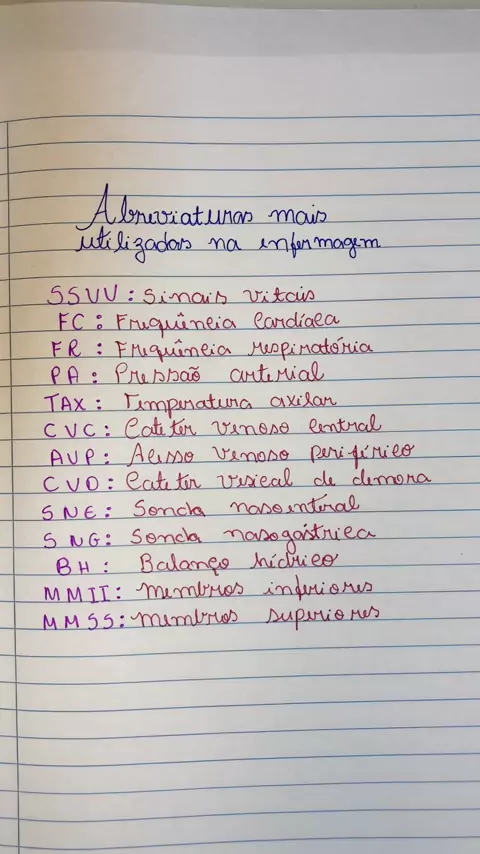 Abreviaturas mais
utilizadas na enfermagem
SSVV: Sinais vitais
FC: Frequência cardíaca
FR: Frequência respiratória
PA: Pressão arterial
TAX: Temperatura axilar
CVC: Cateter venoso central
AVP: Acesso venoso periférico
CVD: Cateter vesical de demora
SNE: Sonda nasoenteral
SNG: Sonda nasogástrica
BH: Balanço hídrico
MMII: membros inferiores
MMSS: membros superiores